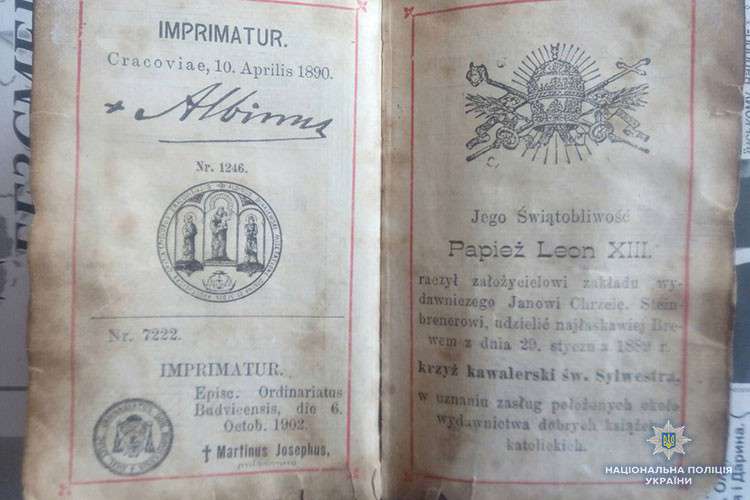 IMPRIMATUR.
Cracoviae, 10. Aprilis 1890.
Albinus
Nr. 1246.
Nr. 7222.
IMPRIMATUR.
Episc. Ordinariatus
Budvicensis, die 6.
Octob. 1902.
† Martinus Josephus,
Jego Świątobliwość
Papież Leon XIII.
raczył założycielowi zakładu wy-
dawniczego Janowi Chrzcie. Stein-
brenerowi, udzielić najłaskawiej Bre-
wem z dnia 29. stycznia 1889 r.
krzyż kawalerski św. Sylwestra,
w uznaniu zasług położonych około
wydawnictwa dobrych książek
katolickich.
НАЦІОНАЛЬНА ПОЛІЦІЯ
УКРАЇНИ
і Дарина.